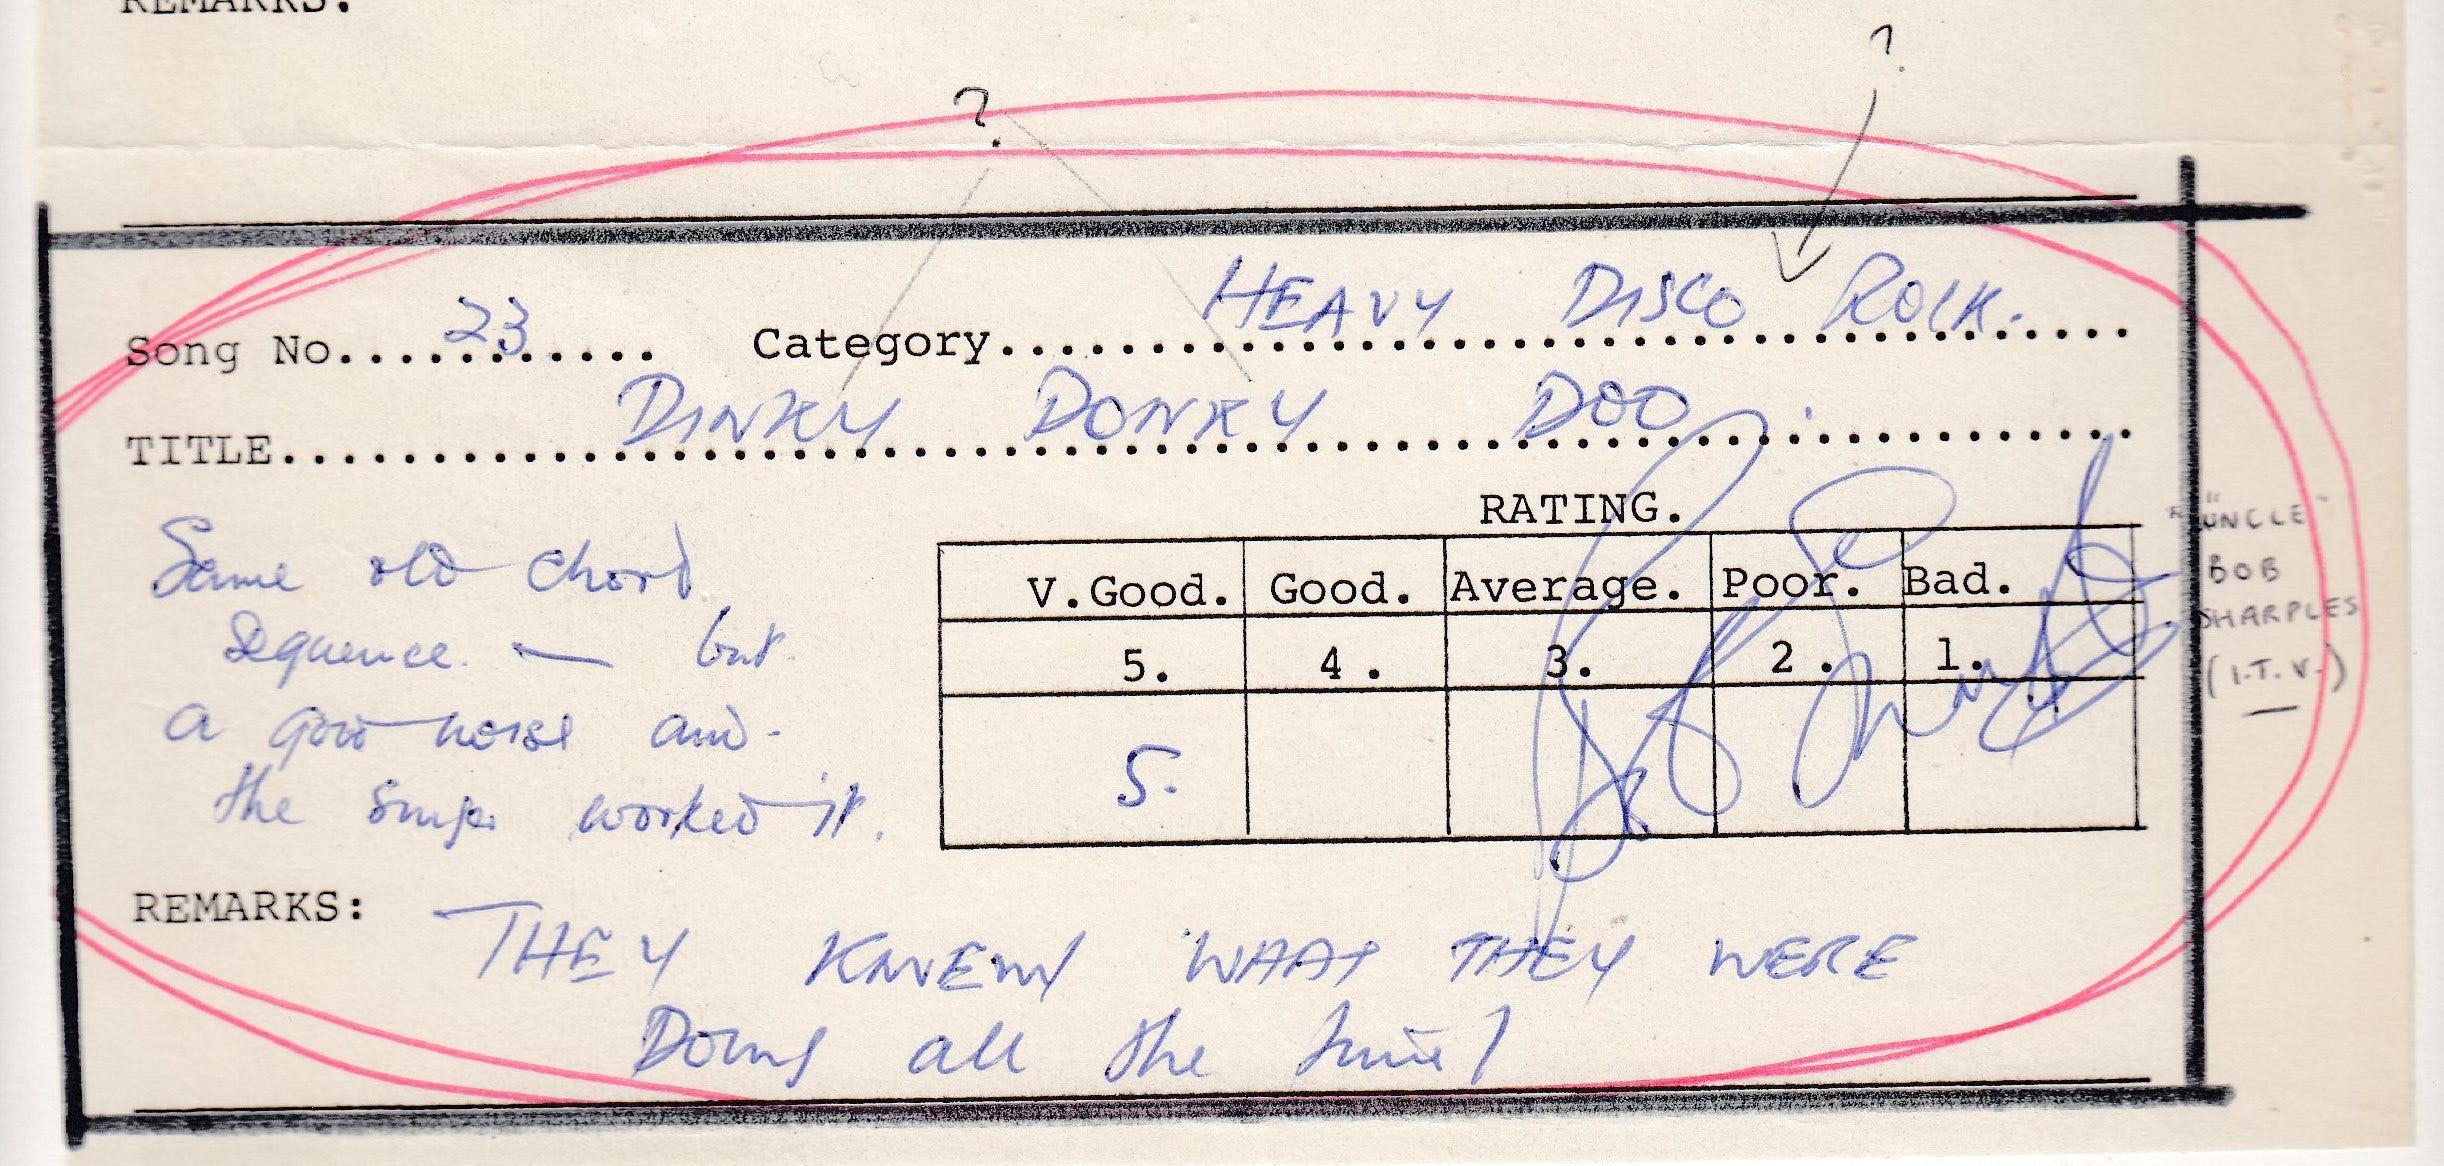 REMARKS:
?
?
Song No............ 23 Category...................................... HEAVY DISCO ROCK.
TITLE.............................................................. DINKY DONKY DOO.
RATING.
V.Good. Good. Average. Poor. Bad.
5. 4. 3. 2. 1.
5.
Same old chord
sequence. — but
a good noise and
the singer worked it.
"UNCLE"
BOB
SHARPLES
(I.T.V.)
REMARKS: THEY KNEW WHAT THEY WERE
Doing all the time!